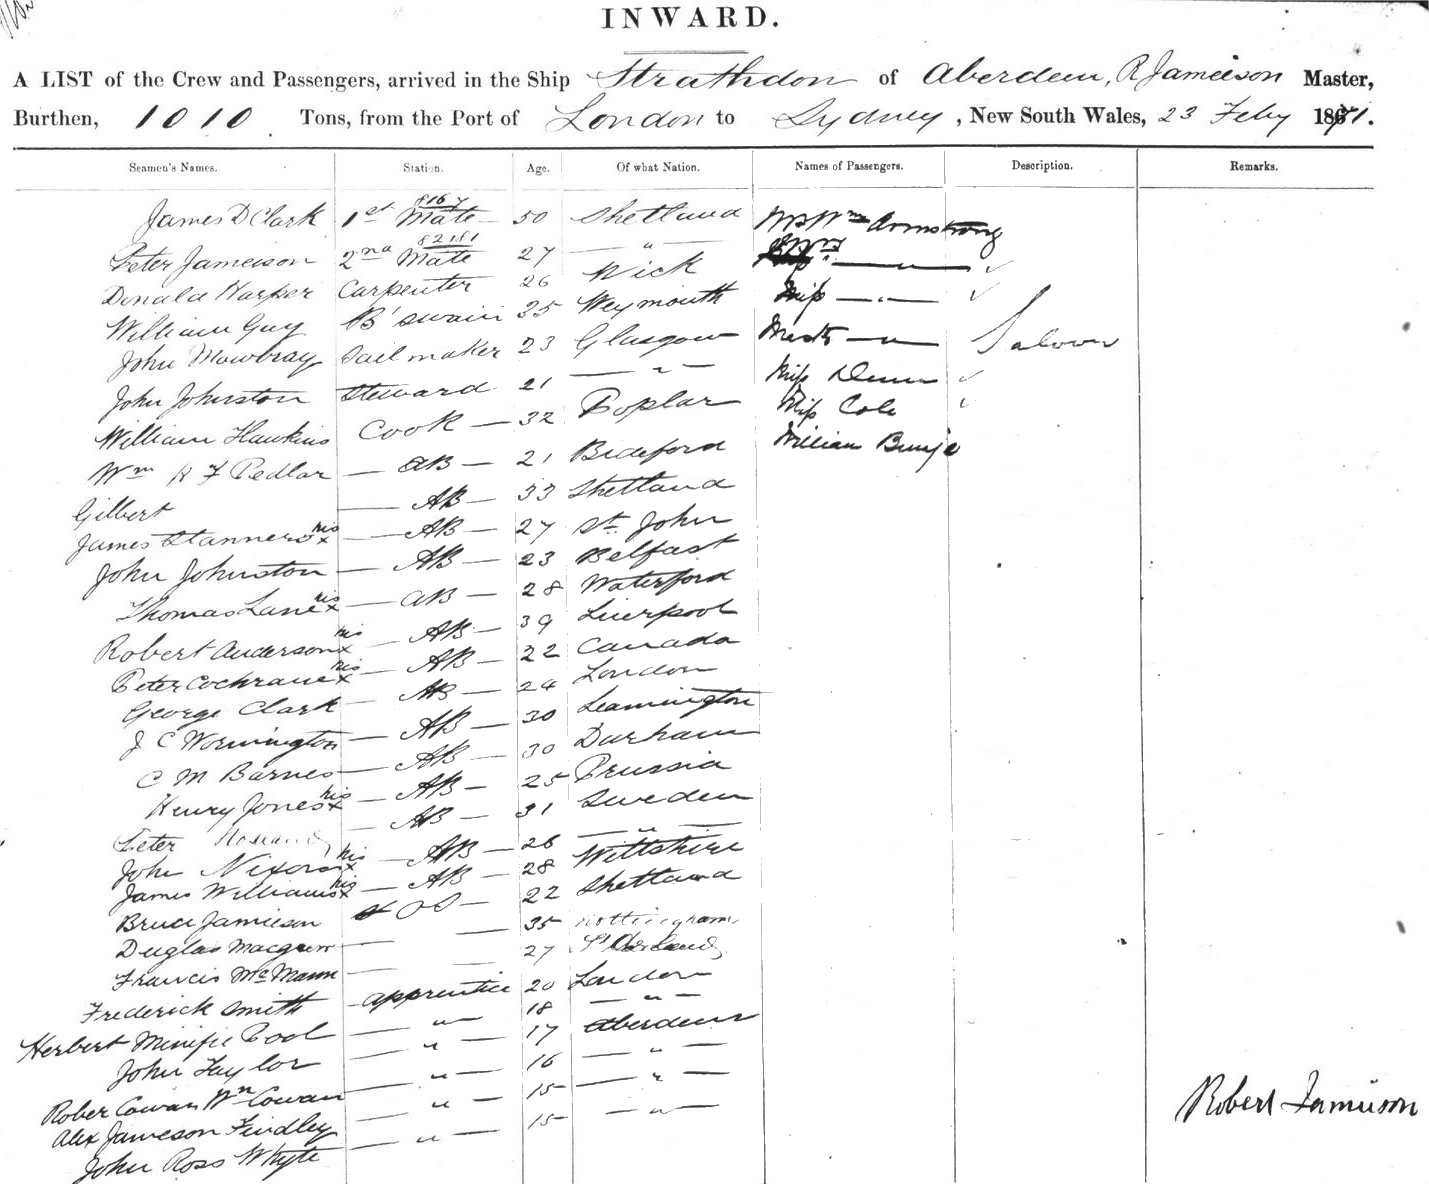 INWARD.
A LIST of the Crew and Passengers, arrived in the Ship Strathdon of Aberdeen, R Jameison Master,
Burthen, 1010 Tons, from the Port of London to Sydney, New South Wales, 23 Feby 1871.
Seamen's Names. Station. Age. Of what Nation. Names of Passengers. Description. Remarks.
James D Clark 1st Mate 50 Shetland Mr Wm Armstrong
Peter Jameison 2nd Mate 27 " Mrs "
Donald Harper Carpenter 26 Wick Miss "
William Guy B'swain 35 Weymouth Mastr " Saloon
John Mowbray Sailmaker 23 Glasgow Miss
John Johnston Steward 21 " Miss Cole
William Hawkins Cook 32 Poplar William
Wm H F Pedlar AB 21 Bideford
Gilbert AB 33 Shetland
James his x AB 27 St. John
John Johnston AB 23 Belfast
Thomas Lane his x AB 28 Waterford
Robert Anderson his x AB 39 Liverpool
Peter Cochrane his x AB 22 Canada
George Clark AB 24 London
J C Wornington AB 30 Leamington
C M Barnes AB 30 Durham
Henry Jones his x AB 25 Prussia
Peter AB 31 Sweden
John Nixon his x AB 26 "
James Williams his x AB 28 Wiltshire
Bruce Jamieson OS 22 Shetland
Duglas 35 Nottingham
Francis McMann 27
Frederick Smith apprentice 20 London
Herbert Minifie Pool " 18 "
John Taylor " 17 Aberdeen
Rober Cowan Wm Cowan " 16 "
Alex Jameson Findley " 15 "
John Ross Whyte " 15 "
8167
82181
Robert Jamieson